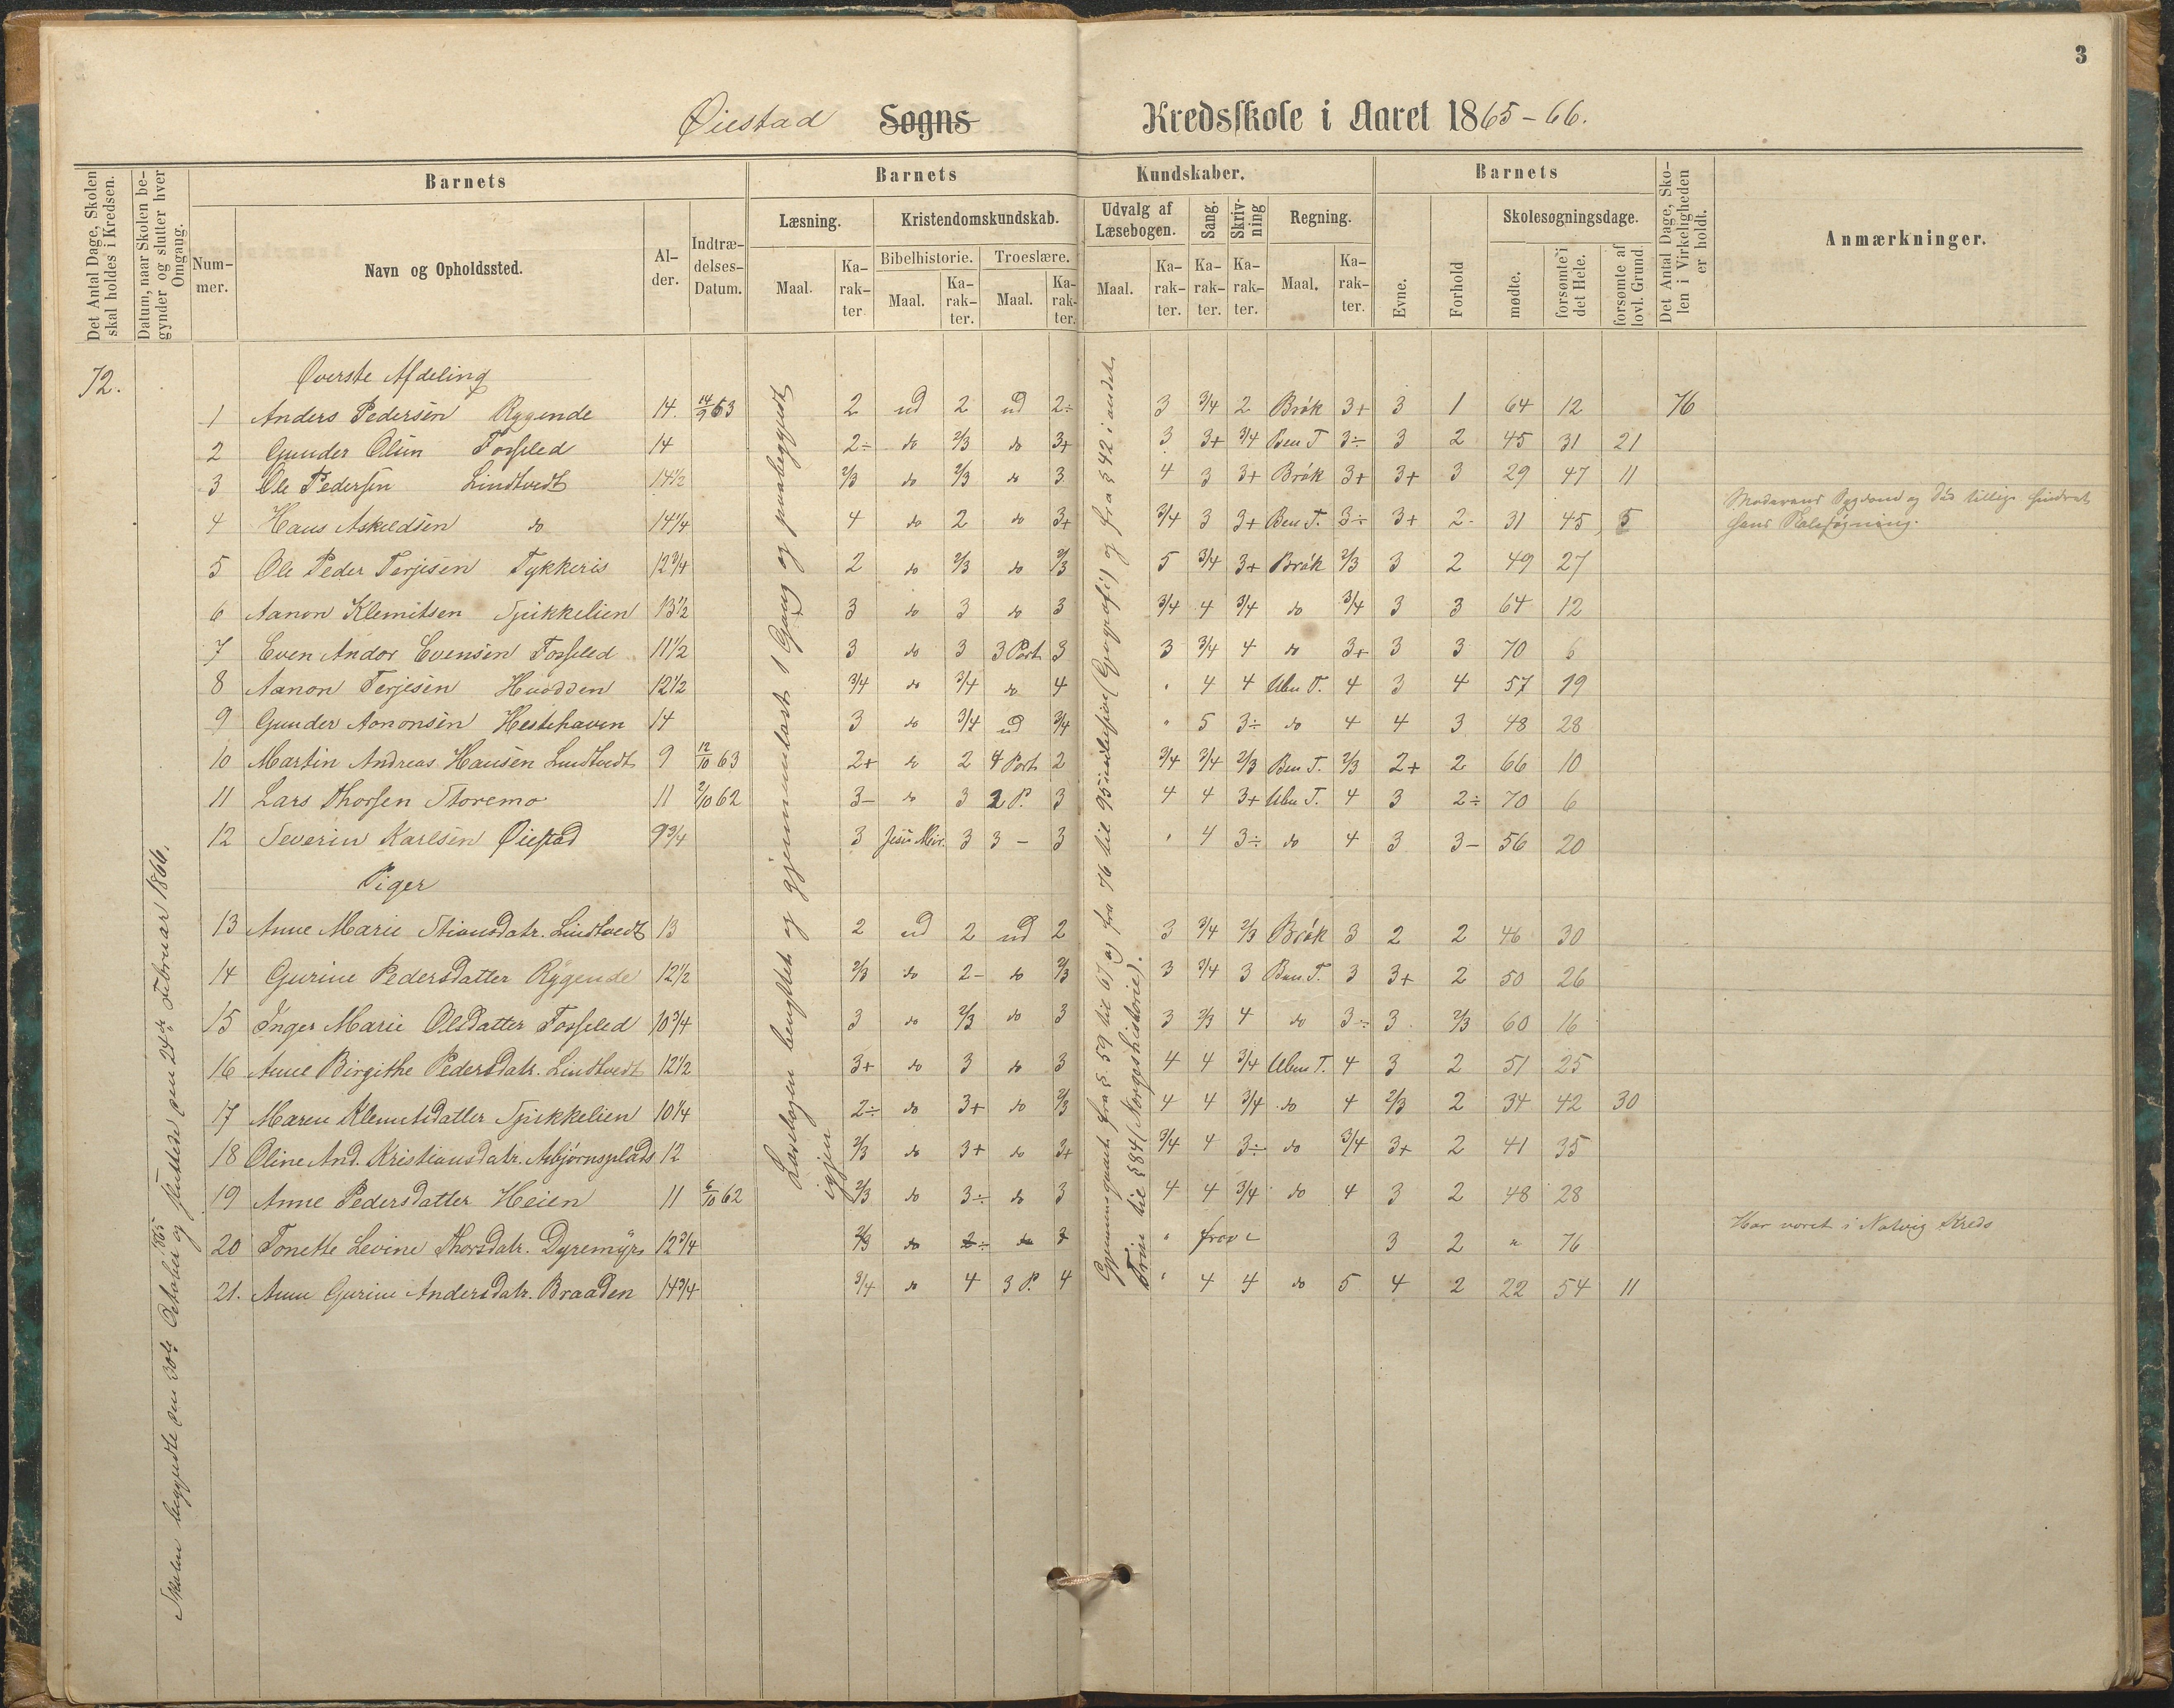 3
Øiestad Sogns Kredsskole i Aaret 1865-66.
Det Antal Dage, Skolen skal holdes i Kredsen.
Datum, naar Skolen begynder og slutter hver Omgang.
Barnets
Nummer.
Navn og Opholdssted.
Alder.
Indtrædelses-Datum.
Barnets Kundskaber.
Læsning.
Maal.
Karakter
Kristendomskundskab.
Bibelhistorie.
Maal.
Karakter.
Troeslære.
Maal.
Karakter.
Udvalg af Læsebogen.
Maal.
Karakter.
Sang.
Karakter.
Skrivning
Karakter.
Regning.
Maal.
Karakter.
Barnets
Evne.
Forhold
Skolesøgningsdage.
mødte.
forsømte i det Hele.
forsømte af lovl. Grund.
Det Antal Dage, Skolen i Virkeligheden er holdt.
Anmærkninger.
72.
Skolen begyndte den 30te October 1865 og sluttede den 24de Februar 1866.
Læsebogen benyttet og gjennemlæst 1 Gang og paabegyndt igjen
Gjennemgaaet fra §. 59 til 67 og fra 76 til 95 inclusive (Geografi) og fra § 42 i andet Trin til § 84 (Norgeshistorie).
Øverste Afdeling
1 Anders Pedersen Rygende 14. 14/9 63 2 ud 2 ud 2÷ 3 3/4 2 Brøk 3+ 3 1 64 12 76
2 Gunder Olsen Fosseled 14 2÷ do 2/3 do 3+ 3 3+ 3/4 Ben T 3÷ 3 2 45 31 21
3 Ole Pedersen Lindtvedt 14 1/2 2/3 do 2/3 do 3 4 3 3+ Brøk 3+ 3+ 3 29 47 11
4 Hans Askildsen do 14 1/4 4 do 2 do 3+ 3/4 3 3+ Ben T. 3÷ 3+ 2- 31 45 5 Moderens Sygdom og Død tillige hindret hans Skolesøgning.
5 Ole Peder Terjesen Tykkeris 12 3/4 2 do 2/3 do 2/3 5 3/4 3+ Brøk 2/3 3 2 49 27
6 Aanon Klemitsen Spikkelien 13 1/2 3 do 3 do 3 3/4 4 3/4 do 3/4 3 3 64 12
7 Even Andor Evensen Fosseled 11 1/2 3 do 3 3 Part 3 3 3/4 4 do 3+ 3 3 70 6
8 Aanon Terjesen Hvodden 12 1/2 3/4 do 3/4 do 4 " 4 4 Uben T. 4 3 4 57 19
9 Gunder Aanonsen Hestehaven 14 3 do 3/4 ud 3/4 " 5 3÷ do 4 4 3 48 28
10 Martin Andreas Hansen Lindtvedt 9 12/10 63 2+ do 2 4 Part 2 3/4 3/4 2/3 Ben T. 2/3 2+ 2 66 10
11 Lars Thorsen Storemo 11 2/10 62 3- do 3 2 P. 3 4 4 3+ Uben T. 4 3 2÷ 70 6
12 Severin Karlsen Øiestad 9 3/4 3 Jesu Mir. 3 3 - 3 " 4 3÷ do 4 3 3- 56 20
Piger
13 Anne Marie Stiansdatr. Lindtvedt 13 2 ud 2 ud 2 3 3/4 2/3 Brøk 3 2 2 46 30
14 Gurine Pedersdatter Rygende 12 1/2 2/3 do 2- do 2/3 3 3/4 3 Ben. T. 3 3+ 2 50 26
15 Inger Marie Olsdatter Fosseled 10 3/4 3 do 2/3 do 3 3 2/3 4 do 3÷ 3 2/3 60 16
16 Anne Birgithe Pedersdatr. Lindtvedt 12 1/2 3+ do 3 do 3 4 4 3/4 Uben T. 4 3 2 51 25
17 Maren Klemitsdatter Spikkelien 10 1/4 2÷ do 3+ do 2/3 4 4 3/4 do 4 2/3 2 34 42 30
18 Oline And. Kristiansdatr. Asbjørnsplads 12 2/3 do 3+ do 3+ 3/4 4 3÷ do 3/4 3+ 2 41 35
19 Anne Pedersdatter Heien 11 6/10 62 2/3 do 3÷ do 3 4 4 3/4 do 4 3 2 48 28
20 Tonette Levine Thorsdatr. Dyremyr 12 3/4 2/3 do 2÷ do 3 " 3 2 " 76 Har været i Natvig Kreds
21. Anne Gurine Andersdatr. Braaden 14 3/4 3/4 do 4 3 P. 4 " 4 4 do 5 4 2 22 54 11